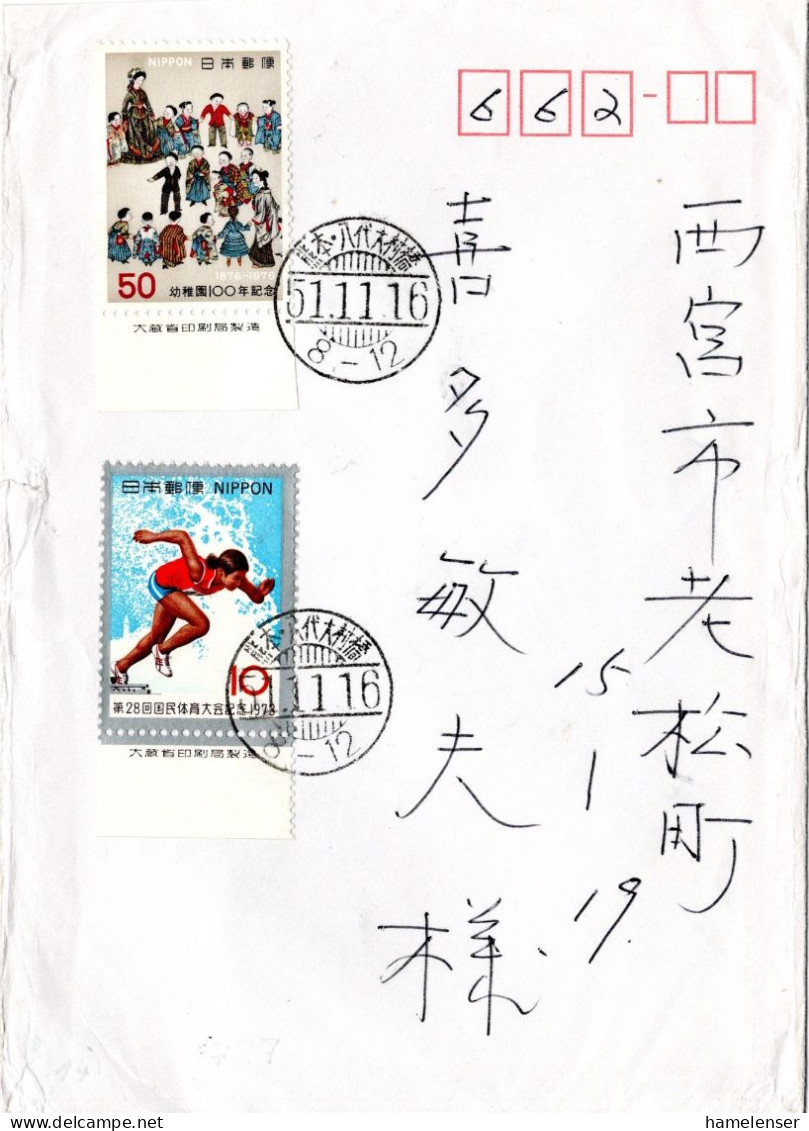 NIPPON 日本郵便
1876-1976
50 幼稚園100年記念
大蔵省印刷局製造
熊本・八代大村橋
51.11.16
8-12
662-
西宮市老松町
15
1
19.
喜多敏夫様
日本郵便 NIPPON
10
第28回国民体育大会記念1973
大蔵省印刷局製造
熊本・八代大村橋
51.11.16
8-12
hamelenser